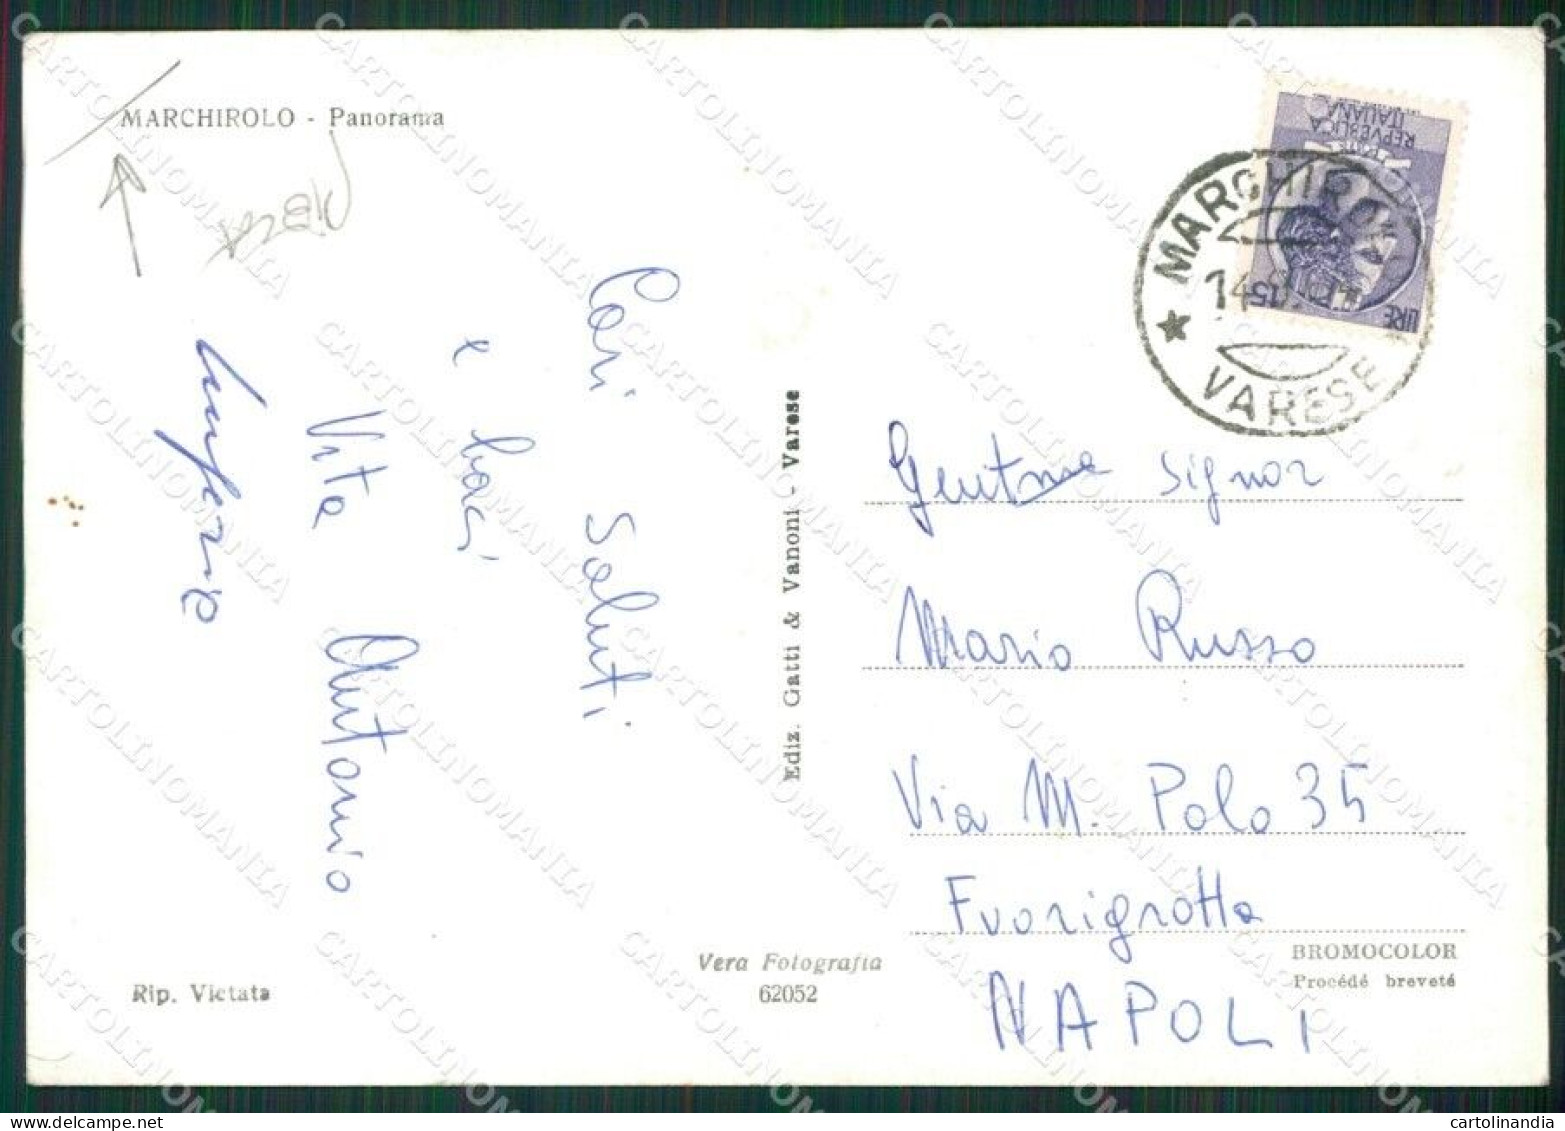 MARCHIROLO - Panorama
Cari Saluti
e baci
Vita Antonio
REPVBBLICA
ITALIANA
LIRE 15
MARCHIROLO
14
★ VARESE
Ediz. Gatti & Vanoni - Varese
Gentme Signor
Mario Russo
Via M. Polo 35
Fuorigrotta
NAPOLI
BROMOCOLOR
Procédé breveté
Vera Fotografia
62052
Rip. Vietata
CARTOLINOMANIA
cartolinandia